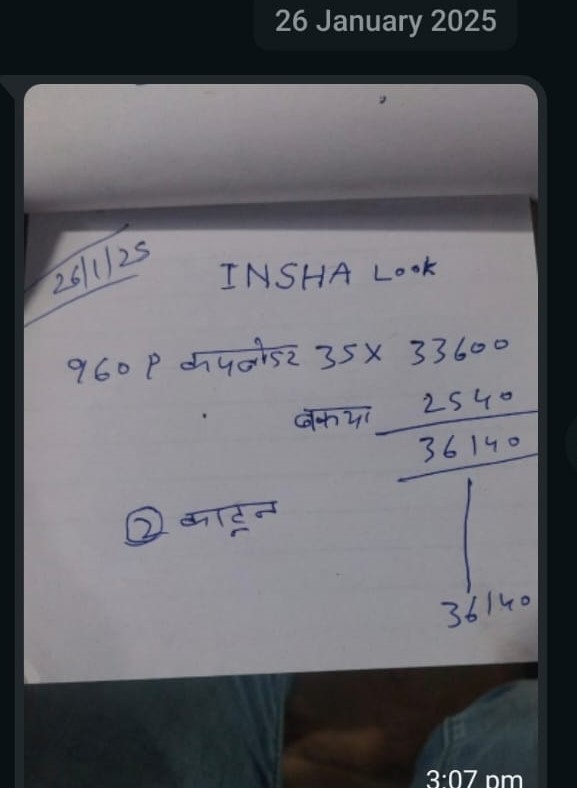 26 January 2025
26/1/25
INSHA Look
960 P कपबोडर 35X 33600
बकया 2540
36140
② काटून
36140
3:07 pm